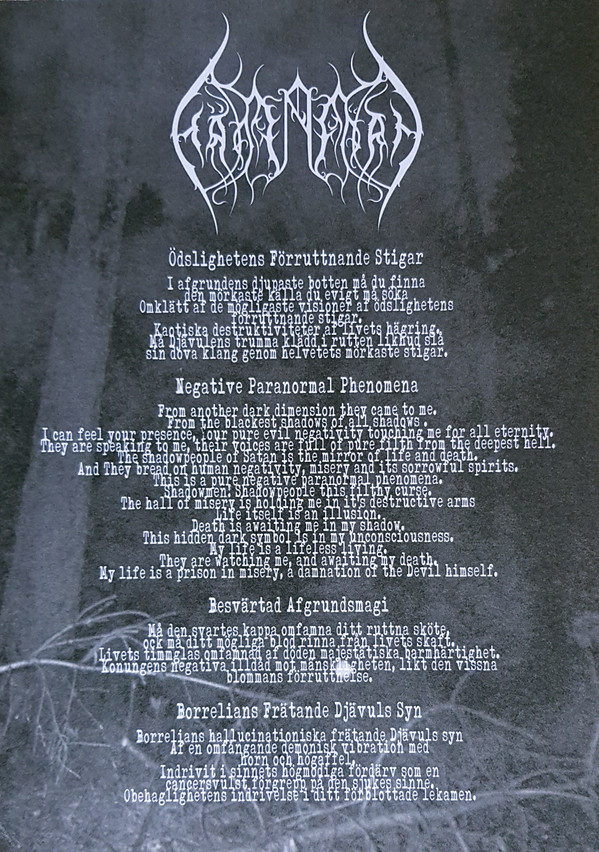 Ödslighetens Förruttnande Stigar
I afgrundens djupaste botten må du finna
den mörkaste källa du evigt må söka
Omklätt af de mögligaste visioner af ödslighetens
förruttnande stigar.
Kaotiska destruktiviteter af livets hägring.
Må Djävulens trumma klädd i rutten likhud slå
sin dova klang genom helvetets mörkaste stigar.
Negative Paranormal Phenomena
From another dark dimension they came to me.
From the blackest shadows of all shadows .
I can feel your presence, your pure evil negativity touching me for all eternity.
They are speaking to me, their voices are full of pure filth from the deepest hell.
The shadowpeople of Satan is the mirror of life and death.
And They bread on human negativity, misery and its sorrowful spirits.
This is a pure negative paranormal phenomena.
Shadowmen, Shadowpeople this filthy curse.
The hall of misery is holding me in it's destructive arms
Life itself is an illusion.
Death is awaiting me in my shadow.
This hidden dark symbol is in my unconsciousness.
My life is a lifeless living.
They are watching me, and awaiting my death.
My life is a prison in misery, a damnation of the Devil himself.
Besvärtad Afgrundsmagi
Må den svartes kappa omfamna ditt ruttna sköte,
ock må ditt mögliga blod rinna från livets skaft.
Livets timmglas omfamnad af döden majestätiska barmhärtighet.
Konungens negativa illdåd mot mänskligheten, likt den vissna
blommans förruttnelse.
Borrelians Frätande Djävuls Syn
Borrelians hallucinationiska frätande Djävuls syn
Af en omfångande demonisk vibration med
horn och högaffel,
Indrivit i sinnets högmodiga fördärv som en
cancersvulst förgrepp på den sjukes sinne.
Obehaglighetens indrivelse i ditt förblottade lekamen.